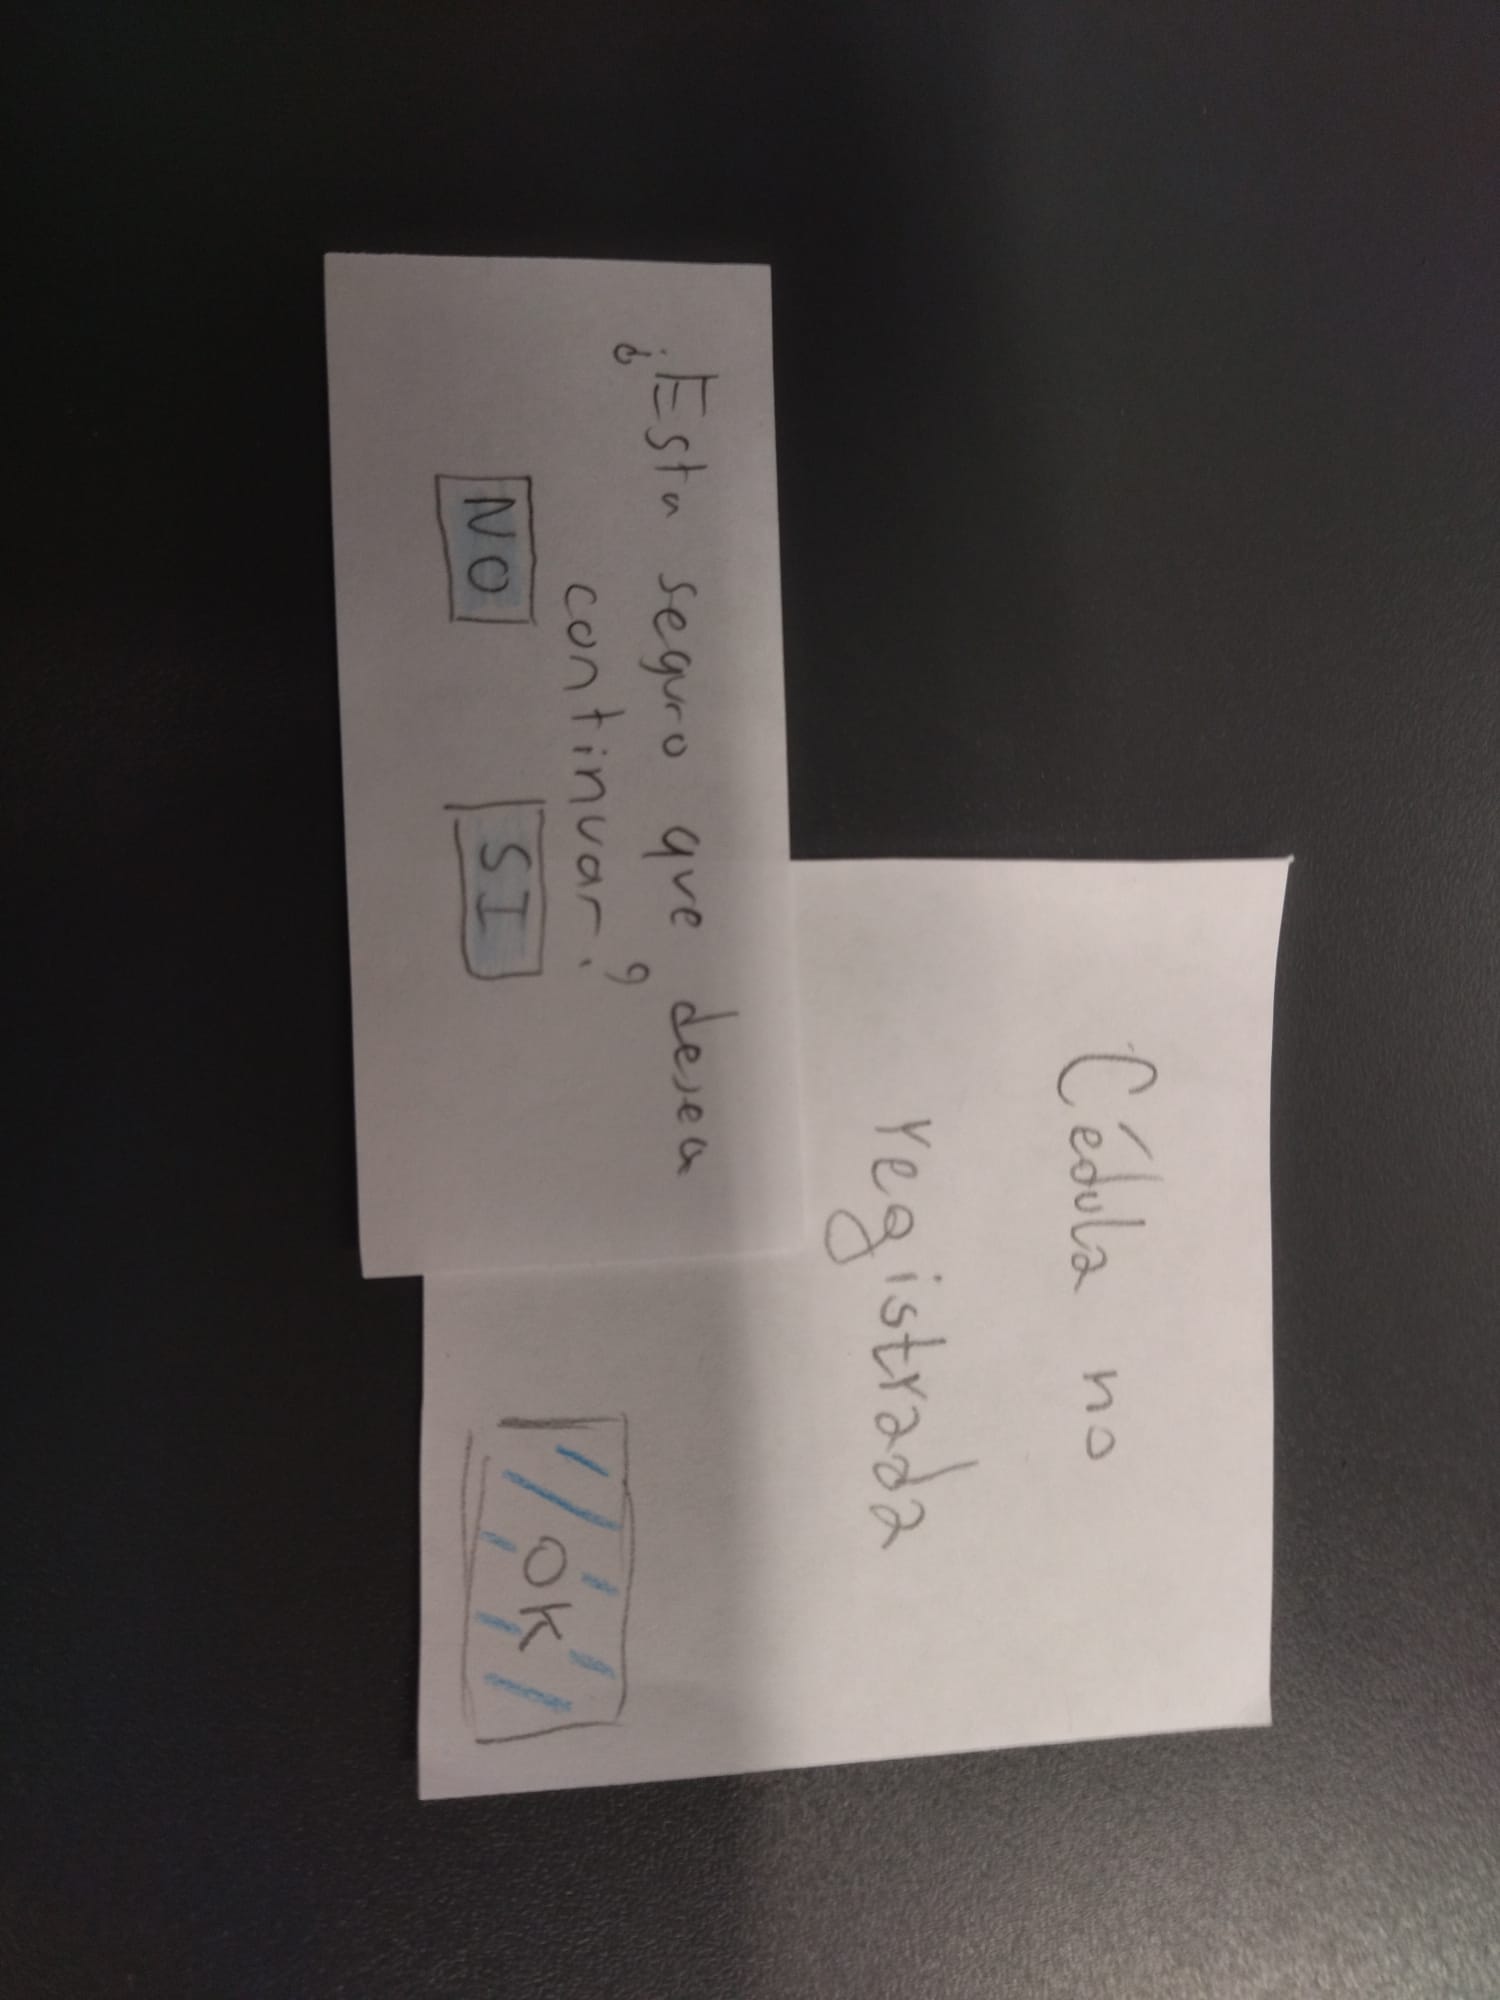 Cédula no
registrada
OK
¿Esta seguro que desea
continuar?
NO
SI